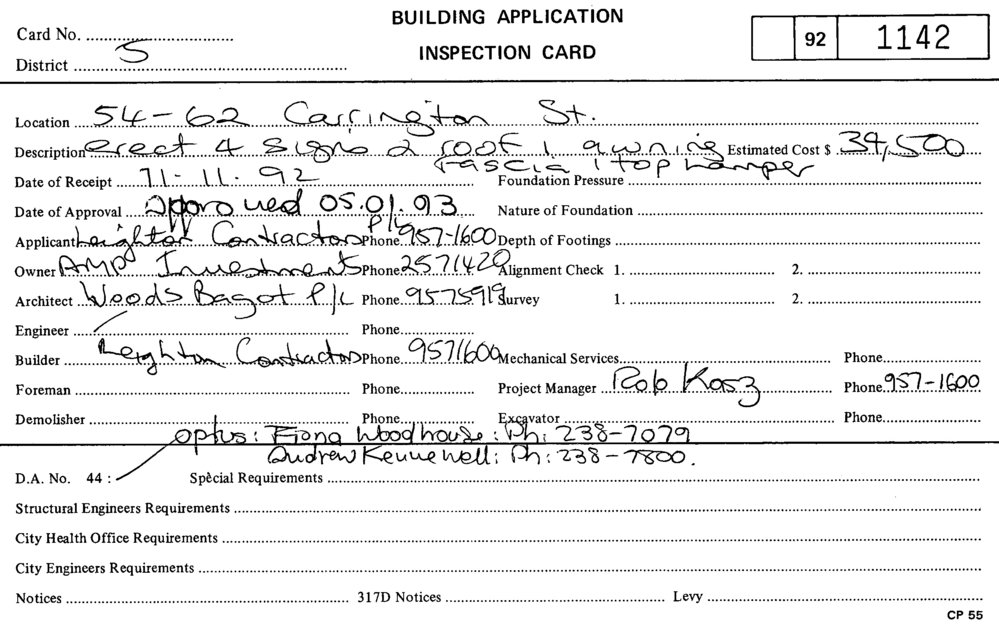 BUILDING APPLICATION
Card No.
INSPECTION CARD
92 1142
District 5
Location 54-62 Carrington St.
Description erect 4 signs 2 roof 1 awning Estimated Cost $ 34,500
fascia 1 top hamper
Date of Receipt 11.11.92 Foundation Pressure
Date of Approval Approved 05.01.93 Nature of Foundation
Applicant Leighton Contractors P/L Phone 957-1600 Depth of Footings
Owner AMP Investments Phone 2571420 Alignment Check 1. 2.
Architect Woods Bagot P/L Phone 9575919 Survey 1. 2.
Engineer Phone
Builder Leighton Contractors Phone 9571600 Mechanical Services Phone
Foreman Phone Project Manager Rob Phone 957-1600
Demolisher Phone Excavator Phone
Optus: Fiona Woodhouse: Ph: 238-7079
Andrew Kennewell: Ph: 238-7800.
D.A. No. 44 : Special Requirements
Structural Engineers Requirements
City Health Office Requirements
City Engineers Requirements
Notices 317D Notices Levy
CP 55